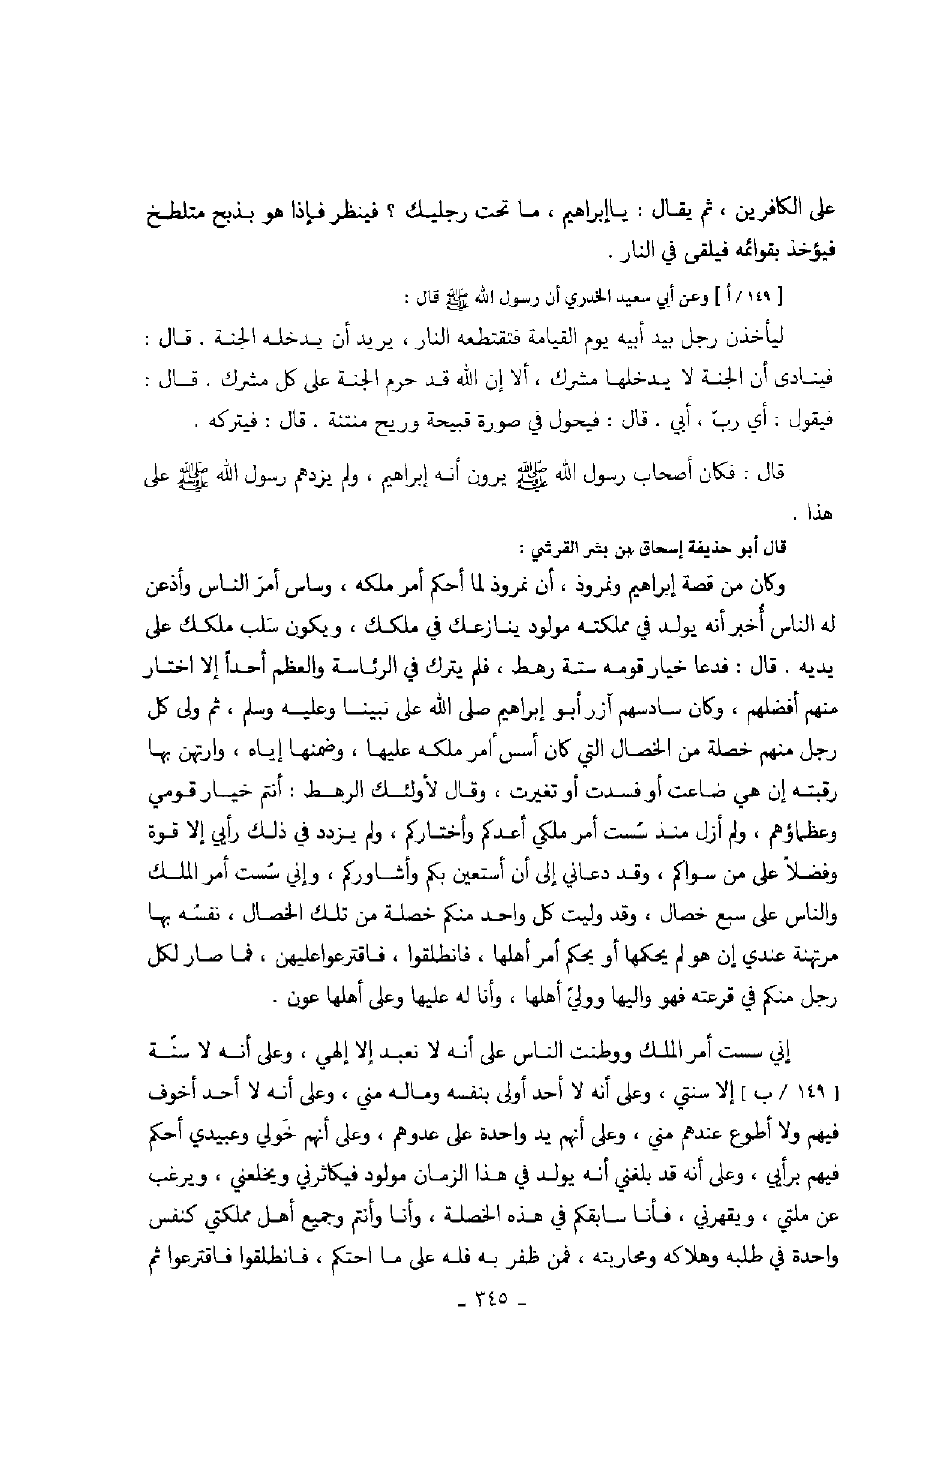 على الكافرين ، ثم يقال : ياإبراهيم ، ما تحت رجليك ؟ فينظر فإذا هو بذبح متلطخ
فيؤخذ بقوائمه فيلقى في النار .
[ ١٤٩ / أ ] وعن أبي سعيد الخدري أن رسول الله ﷺ قال :
ليأخذن رجل بيد أبيه يوم القيامة فتقتطعه النار ، يريد أن يدخله الجنة . قال :
فينادى أن الجنة لا يدخلها مشرك ، ألا إن الله قد حرم الجنة على كل مشرك . قال :
فيقول : أي ربّ ، أبي . قال : فيحول في صورة قبيحة وريح منتنة . قال : فيتركه .
قال : فكان أصحاب رسول الله ﷺ يرون أنه إبراهيم ، ولم يزدهم رسول الله ﷺ على
هذا .
قال أبو حذيفة إسحاق بن بشر القرشي :
وكان من قصة إبراهيم ونمروذ ، أن نمروذ لما أحكم أمر ملكه ، وساس أمرَ الناس وأذعن
له الناس أُخبر أنه يولد في مملكته مولود ينازعك في ملكك ، ويكون سَلب ملكك على
يديه . قال : فدعا خيار قومه ستة رهط ، فلم يترك في الرئاسة والعظم أحداً إلا اختار
منهم أفضلهم ، وكان سادسهم آزر أبو إبراهيم صلى الله على نبينا وعليه وسلم ، ثم ولى كل
رجل منهم خصلة من الخصال التي كان أسس أمر ملكه عليها ، وضمنها إياه ، وارتهن بها
رقبته إن هي ضاعت أو فسدت أو تغيرت ، وقال لأولئك الرهط : أنتم خيار قومي
وعظماؤهم ، ولم أزل منذ سُست أمر ملكي أعدكم وأختاركم ، ولم يزدد في ذلك رأيي إلا قوة
وفضلاً على من سواكم ، وقد دعاني إلى أن أستعين بكم وأشاوركم ، وإني سُست أمر الملك
والناس على سبع خصال ، وقد وليت كل واحد منكم خصلة من تلك الخصال ، نفسُه بها
مرتهنة عندي إن هو لم يحكمها أو يحكم أمر أهلها ، فانطلقوا ، فاقترعواعليهن ، فما صار لكل
رجل منكم في قرعته فهو واليها ووليّ أهلها ، وأنا له عليها وعلى أهلها عون .
إني سست أمر الملك ووطنت الناس على أنه لا نعبد إلا إلهي ، وعلى أنه لا سنّة
[ ١٤٩ / ب ] إلا سنتي ، وعلى أنه لا أحد أولى بنفسه وماله مني ، وعلى أنه لا أحد أخوف
فيهم ولا أطوع عندهم مني ، وعلى أنهم يد واحدة على عدوهم ، وعلى أنهم خَولي وعبيدي أحكم
فيهم برأيي ، وعلى أنه قد بلغني أنه يولد في هذا الزمان مولود فيكاثرني ويخلعني ، ويرغب
عن ملتي ، ويقهرني ، فأنا سابقكم في هذه الخصلة ، وأنا وأنتم وجميع أهل مملكتي كنفس
واحدة في طلبه وهلاكه ومحاربته ، فمن ظفر به فله علي ما احتكم ، فانطلقوا فاقترعوا ثم
- ٣٤٥ -